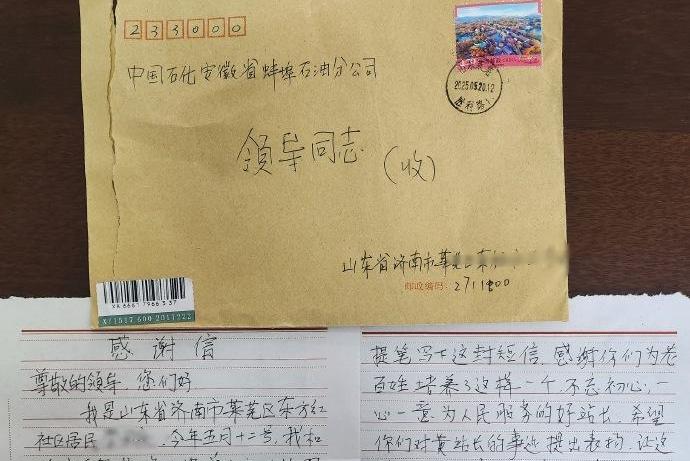 233000
中国石化安徽省蚌埠石油分公司
领导同志(收)
2025.05.20.12
山东省济南市莱芜
邮政编码: 271100
XA 6661 7966 3 37
X/1517 600 2011222
感谢信
尊敬的领导 您们好
我是山东省济南市莱芜区东方红
社区居民 今年五月十二号,我和
提笔写上这封短信,感谢你们为老
百姓培养了这样一个,不忘初心,一
心一意为人民服务的好站长,希望
你们对黄站长的事迹提出表扬,让这